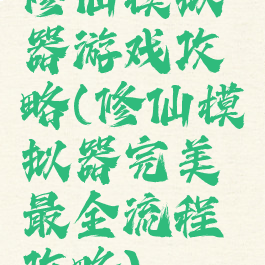 修仙模拟
器游戏攻
略(修仙模
拟器完美
最全流程
攻略)